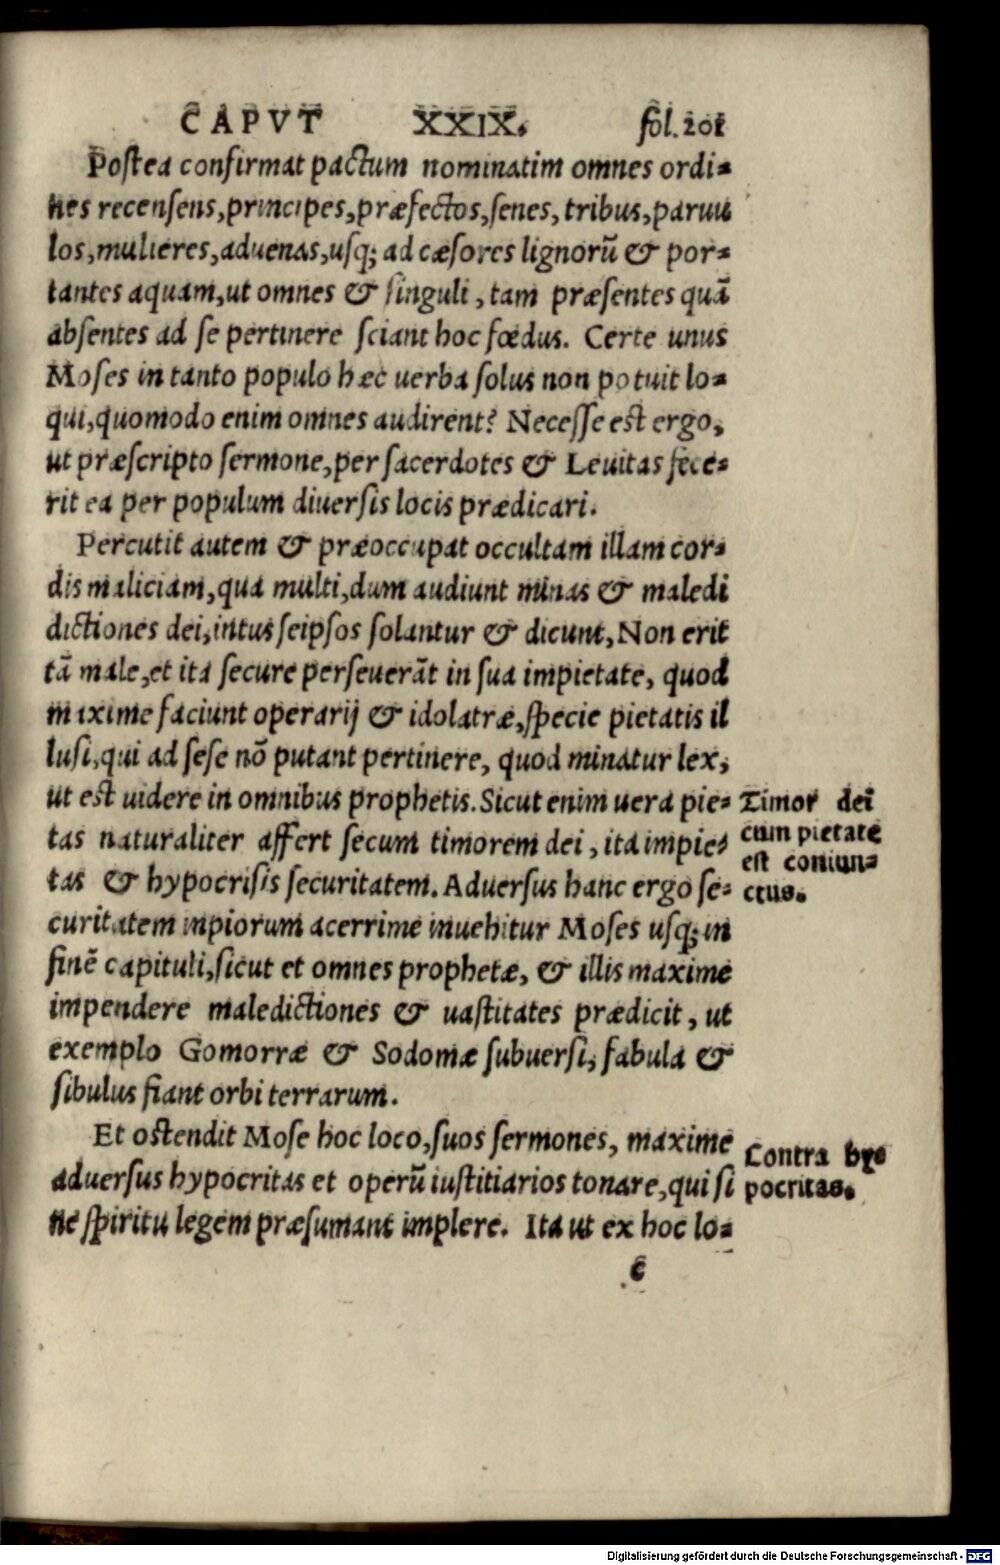 CAPVT XXIX. fol. 201
Poſtea confirmat pactum nominatim omnes ordi-
nes recenſens, principes, præfectos, ſenes, tribus, paruu
los, mulieres, aduenas, uſq; ad cæſores lignorũ & por-
tantes aquam, ut omnes & ſinguli, tam præſentes quã
abſentes ad ſe pertinere ſciant hoc fœdus. Certe unus
Moſes in tanto populo hæc uerba ſolus non potuit lo-
qui, quomodo enim omnes audirent? Neceſſe eſt ergo,
ut præſcripto ſermone, per ſacerdotes & Leuitas fece-
rit ea per populum diuerſis locis prædicari.
Percutit autem & præoccupat occultam illam cor-
dis maliciam, qua multi, dum audiunt minas & maledi
dictiones dei, intus ſeipſos ſolantur & dicunt, Non erit
tã male, et ita ſecure perſeuerãt in ſua impietate, quod
maxime faciunt operarij & idolatræ, ſpecie pietatis il
luſi, qui ad ſeſe nõ putant pertinere, quod minatur lex,
ut eſt uidere in omnibus prophetis. Sicut enim uera pie-
tas naturaliter affert ſecum timorem dei, ita impie-
tas & hypocriſis ſecuritatem. Aduerſus hanc ergo ſe-
curitatem inpiorum acerrime inuehitur Moſes uſq; in
finẽ capituli, ſicut et omnes prophetæ, & illis maxime
impendere maledictiones & uaſtitates prædicit, ut
exemplo Gomorræ & Sodomæ ſubuerſi, fabula &
ſibulus fiant orbi terrarum.
Et oſtendit Moſe hoc loco, ſuos ſermones, maxime
aduerſus hypocritas et operũ iuſtitiarios tonare, qui ſi
ne ſpiritu legem præſumant implere. Ita ut ex hoc lo-
c
Timor dei
cum pietate
eſt coniun-
ctus.
Contra hy-
pocritas.
Digitalisierung gefördert durch die Deutsche Forschungsgemeinschaft - DFG